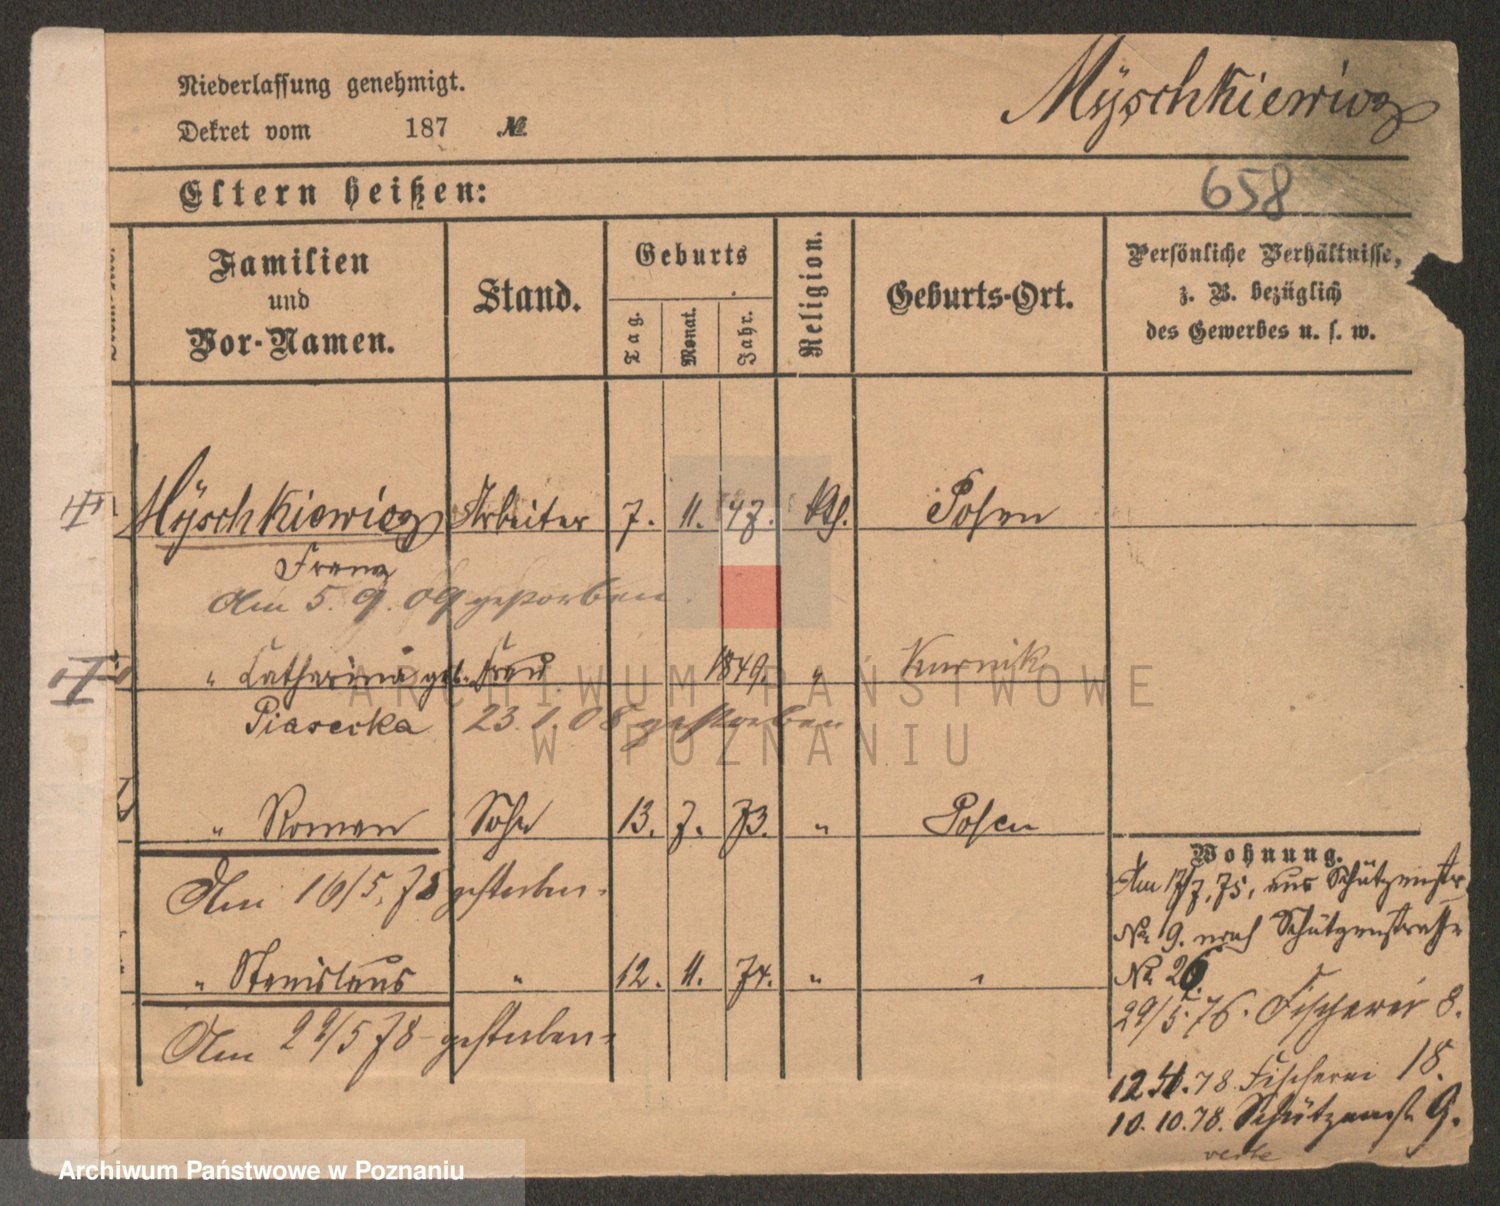 Niederlassung genehmigt.
Myschkiewicz
Dekret vom 187 №
Eltern heißen:
658
Familien und Vor-Namen.
Stand.
Geburts
Tag.
Monat.
Jahr.
Religion.
Geburts-Ort.
Persönliche Verhältnisse,
z. B. bezüglich
des Gewerbes u. s. w.
Mÿschkiewicz Arbeiter 7. 11. 47. kth. Posen
Franz
Am 5. 9. 09 gestorben.
" Catharina geb. Frau 1849. " Kurnik
Piasecka 23.1.08 gestorben
" Roman Sohn 13. 7. 73. " Posen
Am 16/5. 78 gestorben.
" Stanislaus " 12. 11. 74. " "
Am 22/5 78 gestorben.
Wohnung.
Am 17/7. 75, aus Schützenstr
No 9. nach Schützenstraße
No 26.
29/5. 76. Fischerei 8.
78. Fischerei 18.
10. 10. 78. Schützenst. 9.
ARCHIWUM PAŃSTWOWE
W POZNANIU
Archiwum Państwowe w Poznaniu